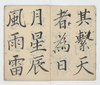 其繫天
者為日
月星辰
風雨雷